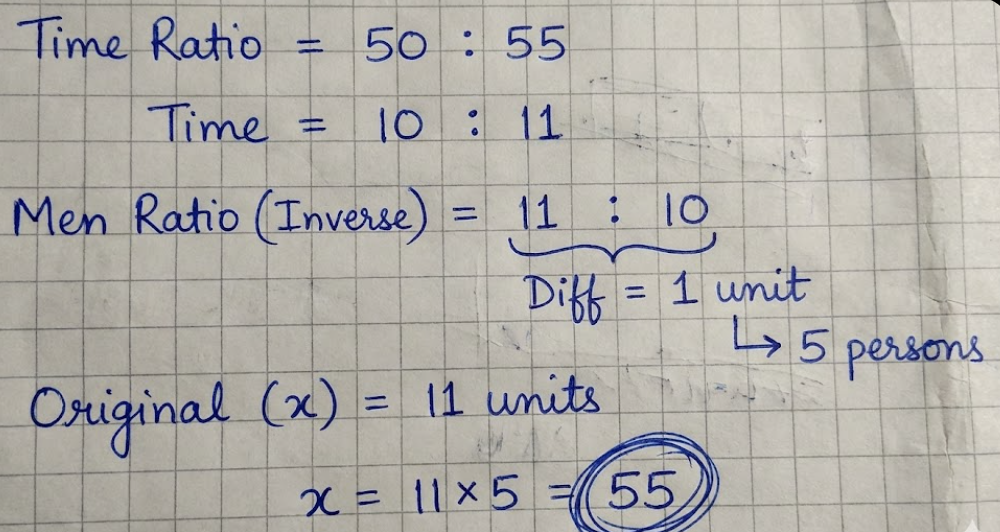 Time Ratio = 50 : 55
Time = 10 : 11
Men Ratio (Inverse) = 11 : 10
Diff = 1 unit
↳ 5 persons
Original (x) = 11 units
x = 11 × 5 = 55